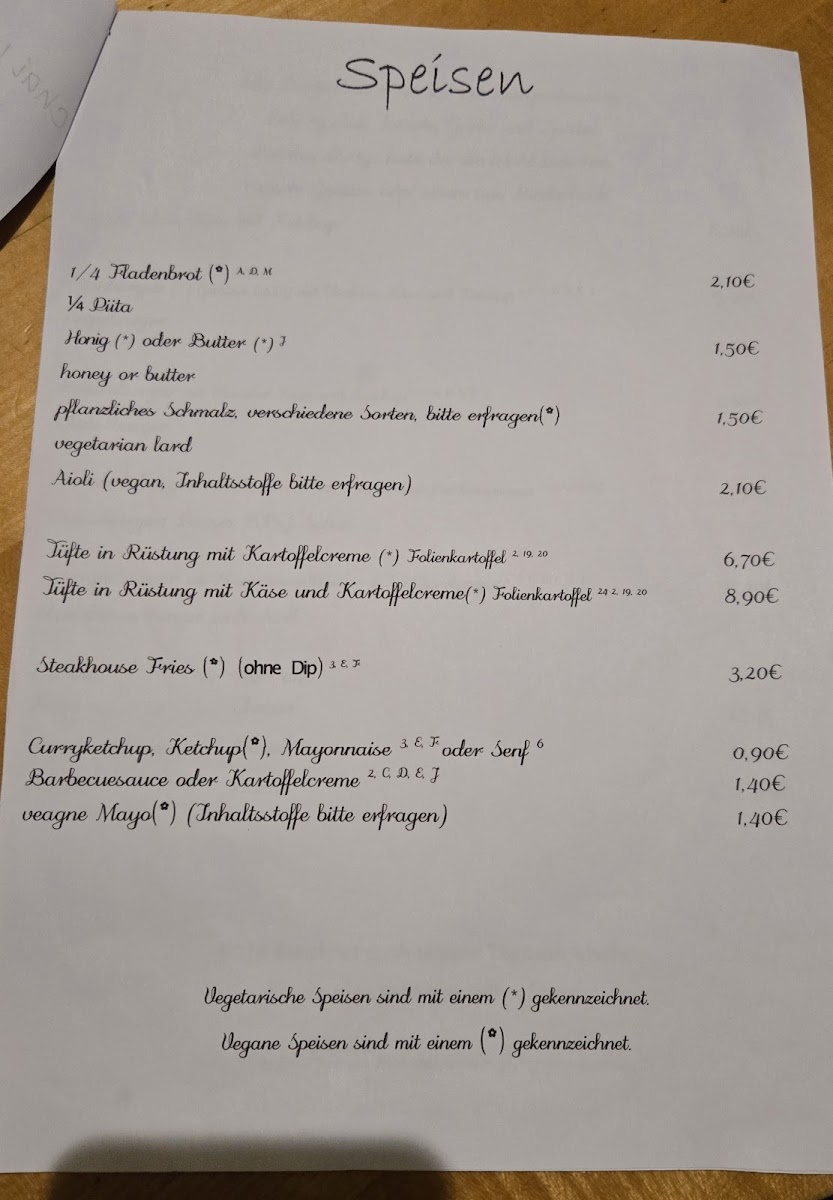 Speisen
1/4 Fladenbrot (✿) A, D, M 2,10€
¼ Piita
Honig (*) oder Butter (*) J 1,50€
honey or butter
pflanzliches Schmalz, verschiedene Sorten, bitte erfragen(✿) 1,50€
vegetarian lard
Aioli (vegan, Inhaltsstoffe bitte erfragen) 2,10€
Tüfte in Rüstung mit Kartoffelcreme (*) Folienkartoffel 2, 19, 20 6,70€
Tüfte in Rüstung mit Käse und Kartoffelcreme(*) Folienkartoffel 24 2, 19, 20 8,90€
Steakhouse Fries (✿) (ohne Dip) 3, E, F 3,20€
Curryketchup, Ketchup(✿), Mayonnaise 3, E, F oder Senf 6 0,90€
Barbecuesauce oder Kartoffelcreme 2, C, D, E, J 1,40€
veagne Mayo(✿) (Inhaltsstoffe bitte erfragen) 1,40€
Vegetarische Speisen sind mit einem (*) gekennzeichnet.
Vegane Speisen sind mit einem (✿) gekennzeichnet.